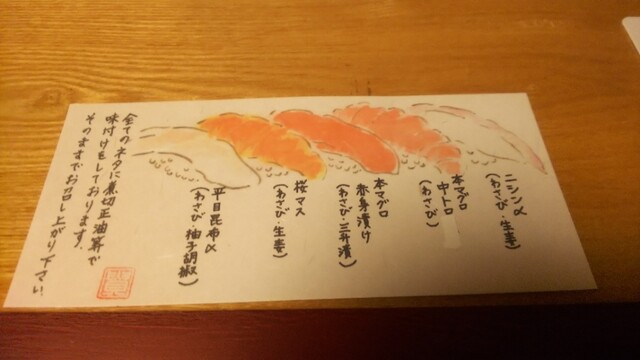 ニシン〆
(わさび・生姜)
本マグロ
中トロ
(わさび)
本マグロ
赤身漬け
(わさび・三升漬)
桜マス
(わさび・生姜)
平目昆布〆
(わさび・柚子胡椒)
全てのネタに煮切正油等で
味付けをしております。
そのままでお召し上がり下さい。